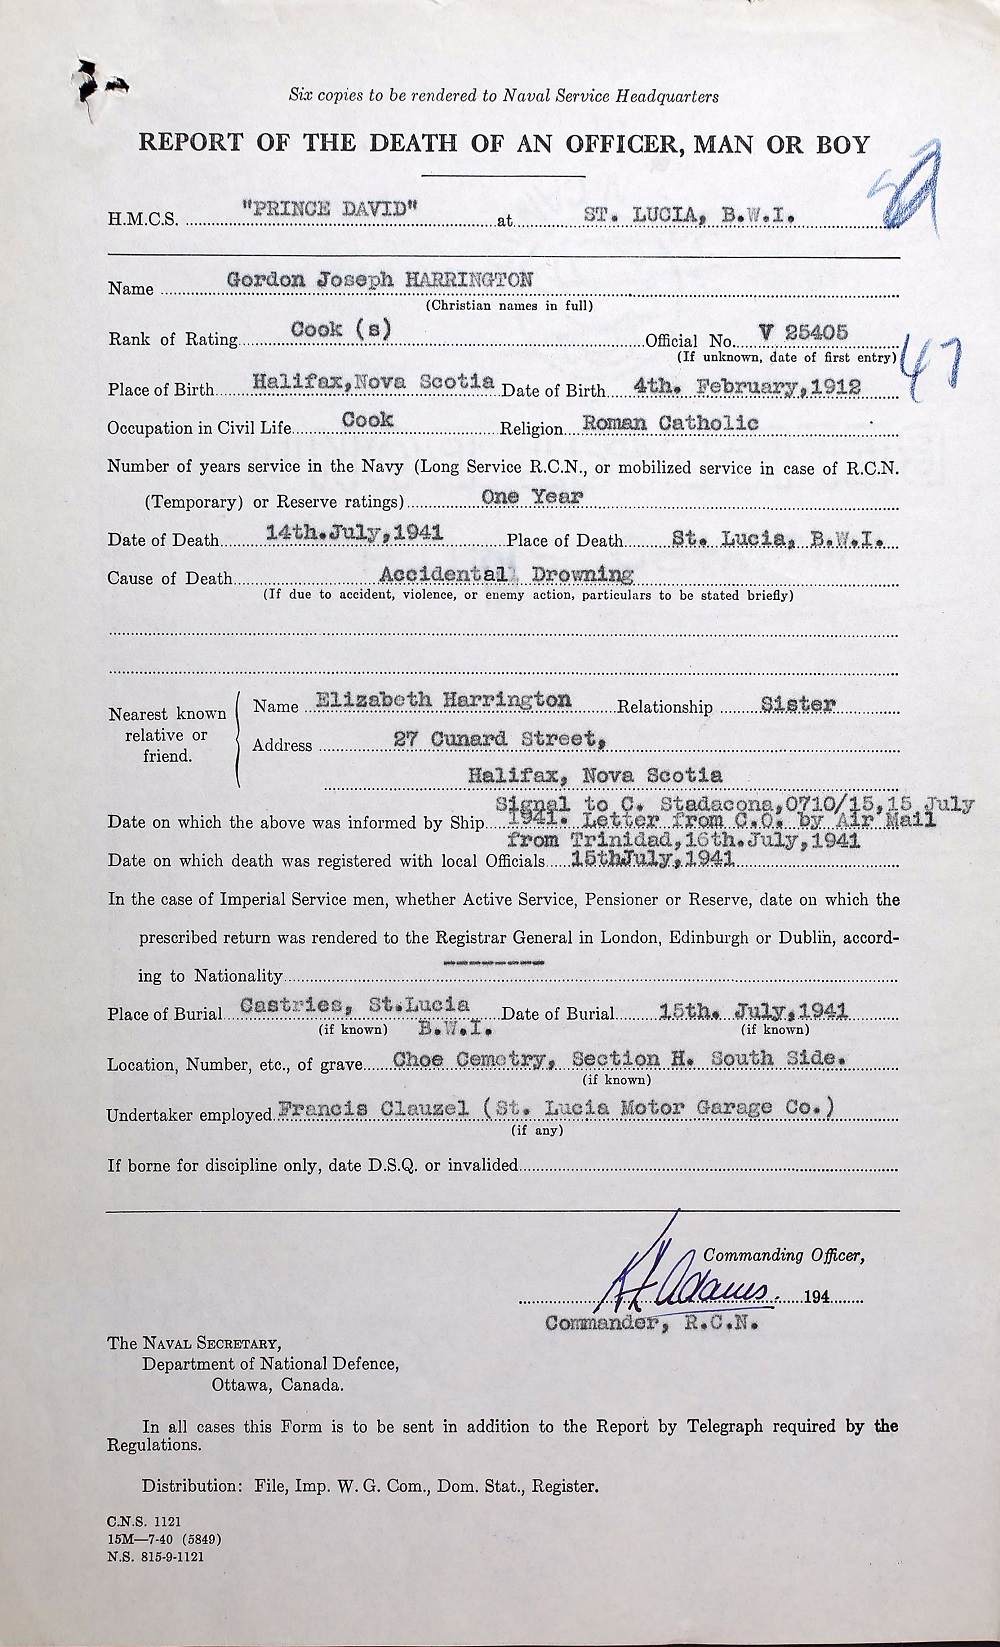 Six copies to be rendered to Naval Service Headquarters
REPORT OF THE DEATH OF AN OFFICER, MAN OR BOY
H.M.C.S. "PRINCE DAVID" at ST. LUCIA, B.W.I.
Name Gordon Joseph HARRINGTON
(Christian names in full)
Rank of Rating Cook (s) Official No. V 25405
(If unknown, date of first entry)
47
Place of Birth Halifax, Nova Scotia Date of Birth 4th. February, 1912
Occupation in Civil Life Cook Religion Roman Catholic
Number of years service in the Navy (Long Service R.C.N., or mobilized service in case of R.C.N.
(Temporary) or Reserve ratings) One Year
Date of Death 14th. July, 1941 Place of Death St. Lucia, B.W.I.
Cause of Death Accidental Drowning
(If due to accident, violence, or enemy action, particulars to be stated briefly)
Nearest known relative or friend.
Name Elizabeth Harrington Relationship Sister
Address 27 Cunard Street,
Halifax, Nova Scotia
Signal to C. Stadacona, 0710/15, 15 July
Date on which the above was informed by Ship 1941. Letter from C.O. by Air Mail
from Trinidad, 16th. July, 1941
Date on which death was registered with local Officials 15thJuly, 1941
In the case of Imperial Service men, whether Active Service, Pensioner or Reserve, date on which the
prescribed return was rendered to the Registrar General in London, Edinburgh or Dublin, accord-
ing to Nationality ----------
Place of Burial Castries, St.Lucia Date of Burial 15th. July, 1941
(if known) B.W.I. (if known)
Location, Number, etc., of grave Choe Cemetry, Section H. South Side.
(if known)
Undertaker employed Francis Clauzel (St. Lucia Motor Garage Co.)
(if any)
If borne for discipline only, date D.S.Q. or invalided
Commanding Officer,
Adams. 194
Commander, R.C.N.
The NAVAL SECRETARY,
Department of National Defence,
Ottawa, Canada.
In all cases this Form is to be sent in addition to the Report by Telegraph required by the
Regulations.
Distribution: File, Imp. W. G. Com., Dom. Stat., Register.
C.N.S. 1121
15M—7-40 (5849)
N.S. 815-9-1121